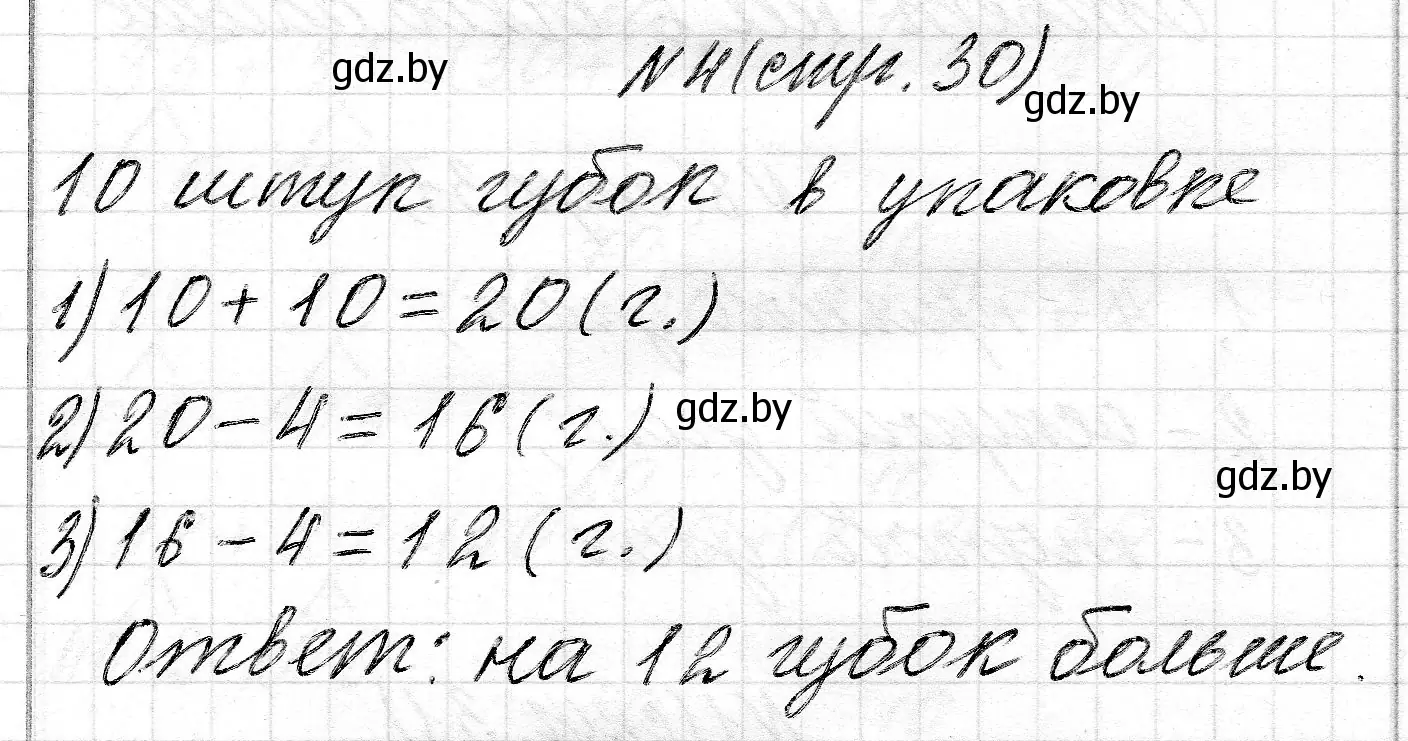 gdz.by
№ 4 (стр. 30)
gdz.by
10 штук губок в упаковке
1) 10 + 10 = 20 (г.)
2) 20 - 4 = 16 (г.)
gdz.by
gdz.by
3) 16 - 4 = 12 (г.)
Ответ: на 12 губок больше.